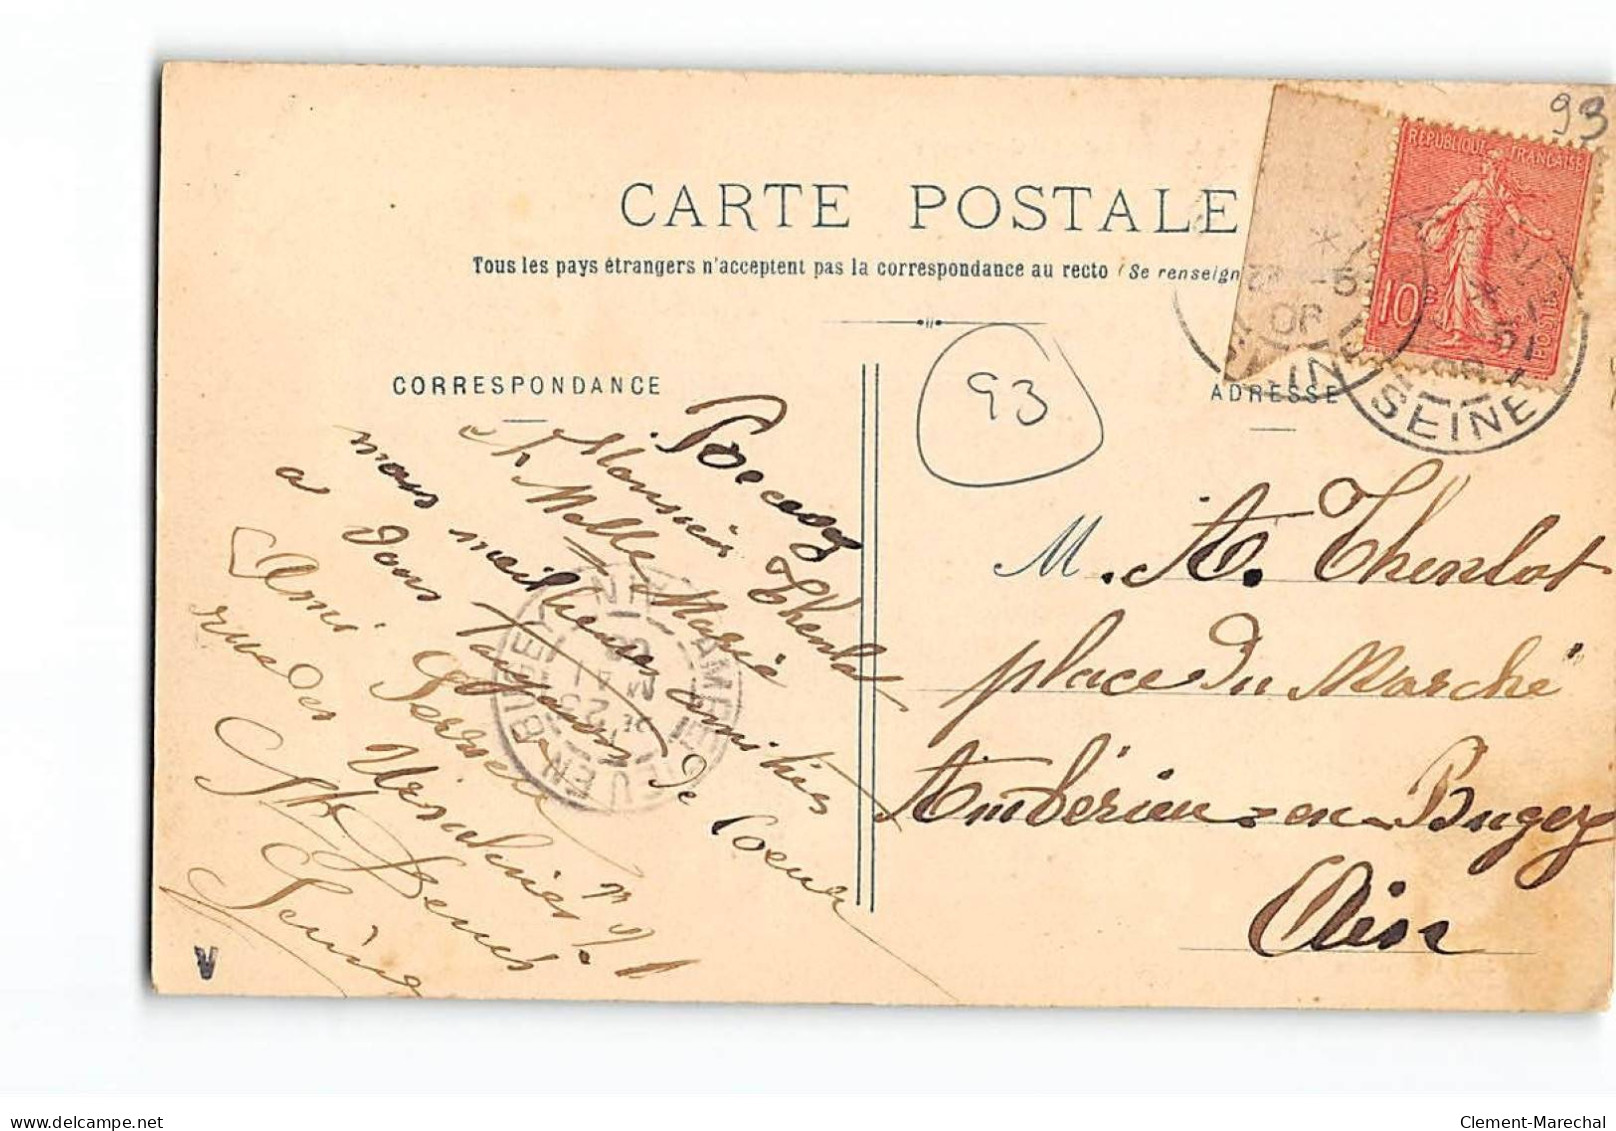 93
CARTE POSTALE
Tous les pays étrangers n'acceptent pas la correspondance au recto (Se renseign
REPUBLIQUE FRANÇAISE
10
POSTES
SEINE
CORRESPONDANCE
ADRESSE
93
Recevez
Monsieur Thenlot
et Melle Marie
mes meilleures amitiés
a vous Tayons de Coeur
Ami
rue des Ursulines
St Denis
Seine
AMBERIEU EN BUGEY
AIN
25
M. A. Thenlot
place du Marché
Ambérieu-en-Bugey
Ain
V
delcampe.net
Clement-Marechal